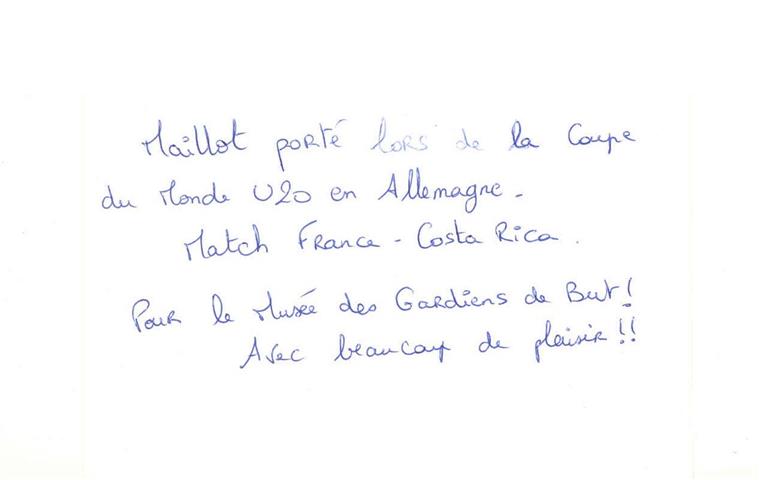 Maillot porté lors de la Coupe
du Monde U20 en Allemagne -
Match France - Costa Rica.
Pour le Musée des Gardiens de But !
Avec beaucoup de plaisir !!